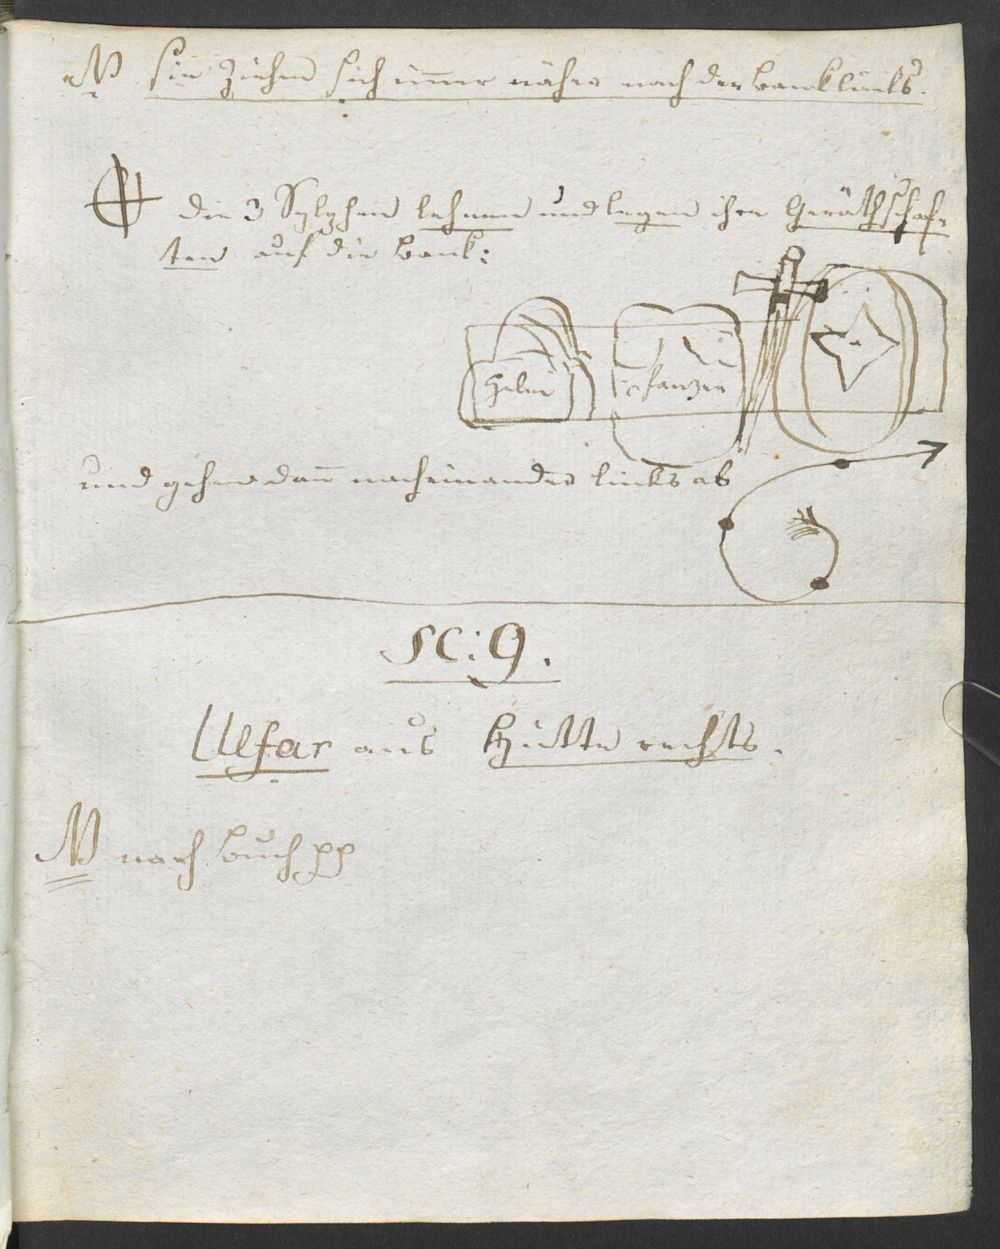 NB sie ziehen sich im̄er näher nach der Bank links.
die 3 Sylphen lehnen und legen ihre Geräthschaf-
ten auf die Bank:
Helm
Panzer
und gehen dan̄ nacheinander links ab
SC: 9.
Ulfar aus Hütte rechts.
NB nach Buch pp